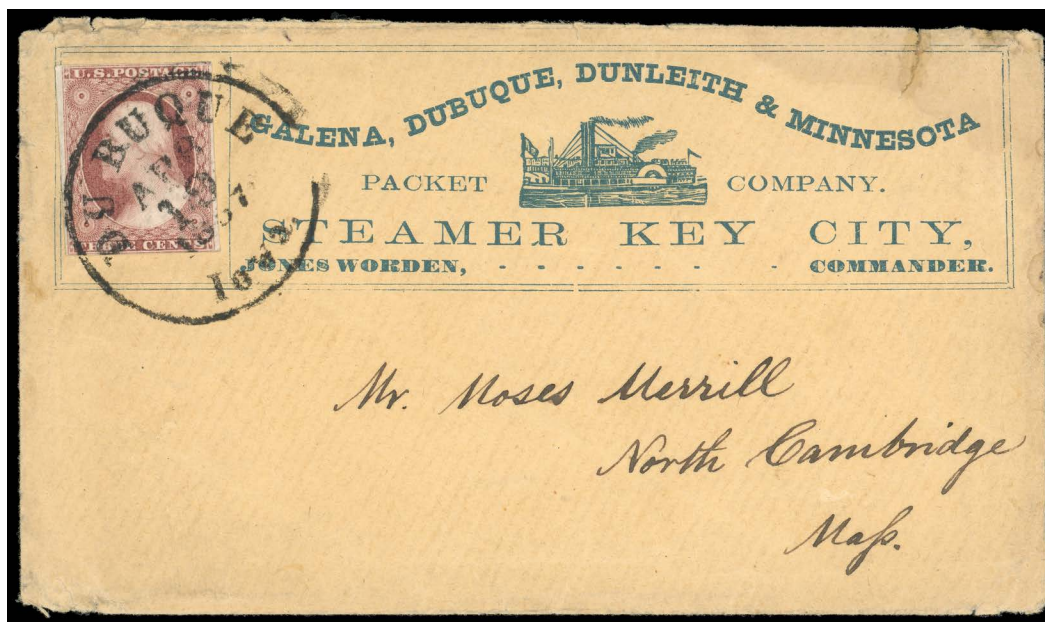 U.S. POSTAGE
THREE CENTS
DUBUQUE
APR
1857
Iowa.
GALENA, DUBUQUE, DUNLEITH & MINNESOTA
PACKET COMPANY.
STEAMER KEY CITY,
JONES WORDEN, - - - - - - - COMMANDER.
Mr. Moses Merrill
North Cambridge
Mass.